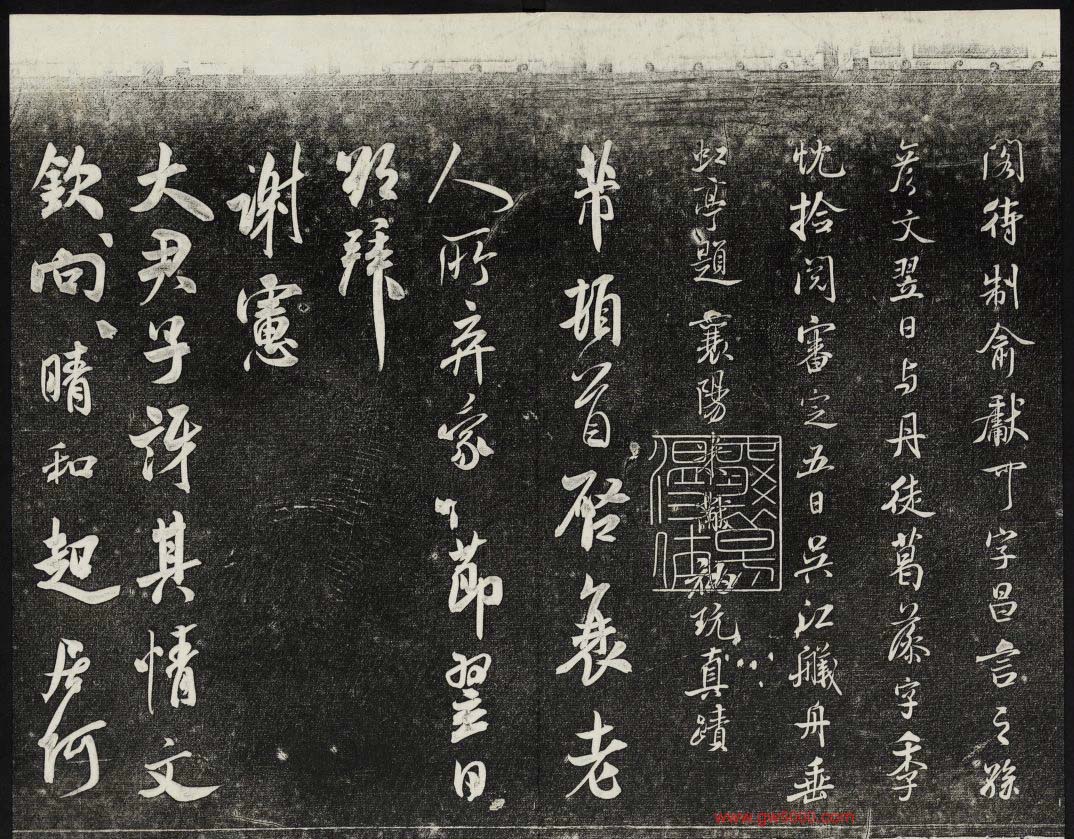 閣待制俞獻可字昌言之孫
彦文翌日与丹徒葛藻字季
忱拾閱審定五日吴江艤舟垂
虹亭題 襄陽米黻祕玩真蹟
芾頓首启衰老
人所弃節翌日
拜
謝憲
大君子訝其情文
欽〻向〻晴和起居何